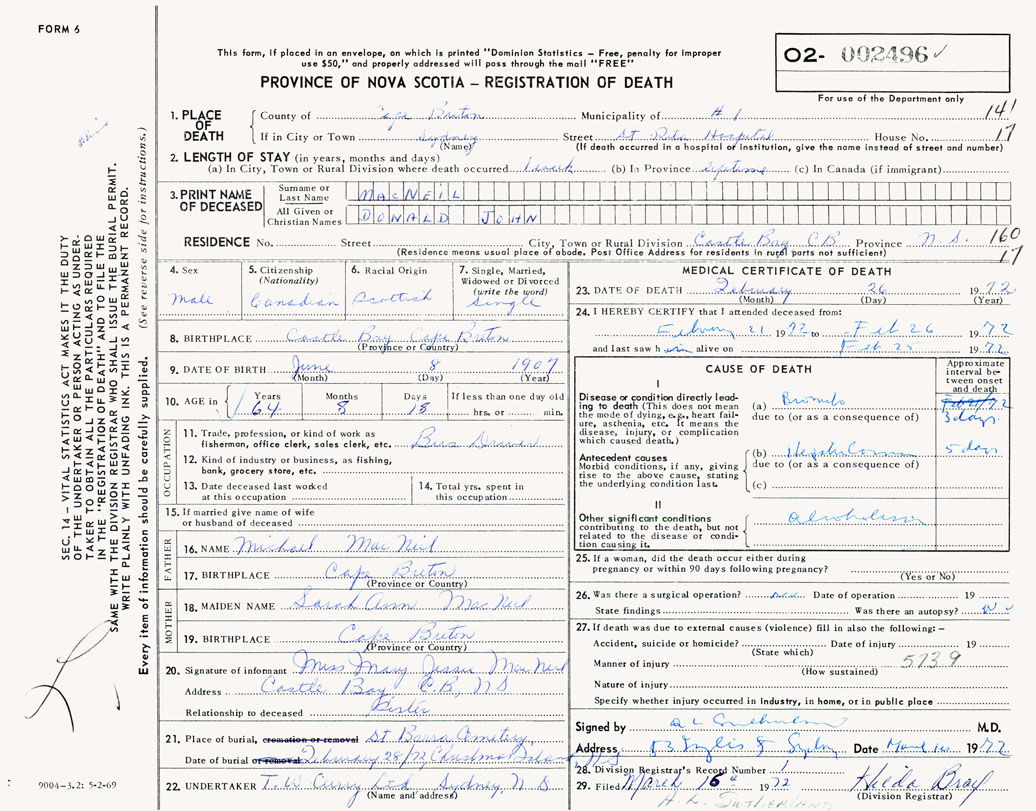 FORM 6
This form, if placed in an envelope, on which is printed "Dominion Statistics – Free, penalty for improper
use $50," and properly addressed will pass through the mail "FREE"
PROVINCE OF NOVA SCOTIA – REGISTRATION OF DEATH
02- 002496
For use of the Department only
1. PLACE OF DEATH
County of Cape Breton Municipality of # 1 141
If in City or Town Sydney Street St Rita Hospital House No. 17
(Name) (If death occurred in a hospital or institution, give the name instead of street and number)
2. LENGTH OF STAY (in years, months and days)
(a) In City, Town or Rural Division where death occurred 1 week (b) In Province lifetime (c) In Canada (if immigrant)
3. PRINT NAME OF DECEASED
Surname or Last Name MACNEIL
All Given or Christian Names DONALD JOHN
RESIDENCE No. Street City, Town or Rural Division Castle Bay C.B. Province N.S. 160
(Residence means usual place of abode. Post Office Address for residents in rural parts not sufficient) 17
4. Sex
Male
5. Citizenship
(Nationality)
Canadian
6. Racial Origin
Scottish
7. Single, Married,
Widowed or Divorced
(write the word)
Single
8. BIRTHPLACE Castle Bay Cape Breton
(Province or Country)
9. DATE OF BIRTH June 8 1907
(Month) (Day) (Year)
10. AGE in Years Months Days If less than one day old
64 8 18 hrs. or min.
OCCUPATION
11. Trade, profession, or kind of work as
fisherman, office clerk, sales clerk, etc. Bus
12. Kind of industry or business, as fishing,
bank, grocery store, etc.
13. Date deceased last worked
at this occupation
14. Total yrs. spent in
this occupation
15. If married give name of wife
or husband of deceased
FATHER
16. NAME Michael MacNeil
17. BIRTHPLACE Cape Breton
(Province or Country)
MOTHER
18. MAIDEN NAME Sarah Ann MacNeil
19. BIRTHPLACE Cape Breton
(Province or Country)
20. Signature of informant Miss Mary Jessie MacNeil
Address Castle Bay C.B., NS
Relationship to deceased Sister
21. Place of burial, cremation or removal St Barra Cemetery
Date of burial or removal February 28/72 Christmas Island NS
22. UNDERTAKER T. W. Curry Ltd Sydney, N.S
(Name and address)
MEDICAL CERTIFICATE OF DEATH
23. DATE OF DEATH February 26 1972
(Month) (Day) (Year)
24. I HEREBY CERTIFY that I attended deceased from:
February 21 1972 to Feb 26 1972
and last saw him alive on Feb 25 1972
CAUSE OF DEATH
Approximate
interval be-
tween onset
and death
I
Disease or condition directly lead-
ing to death (This does not mean
the mode of dying, e.g., heart fail-
ure, asthenia, etc. It means the
disease, injury, or complication
which caused death.)
(a)
due to (or as a consequence of) 3 days
Antecedent causes
Morbid conditions, if any, giving
rise to the above cause, stating
the underlying condition last.
(b) Hepatic Coma 5 days
due to (or as a consequence of)
(c)
II
Other significant conditions
contributing to the death, but not
related to the disease or condi-
tion causing it.
Alcoholism
25. If a woman, did the death occur either during
pregnancy or within 90 days following pregnancy?
(Yes or No)
26. Was there a surgical operation? no Date of operation 19
State findings Was there an autopsy? No
27. If death was due to external causes (violence) fill in also the following: –
Accident, suicide or homicide? Date of injury 19
(State which)
Manner of injury 573.9
(How sustained)
Nature of injury
Specify whether injury occurred in industry, in home, or in public place
Signed by M.D.
Address Sydney Date 1972
28. Division Registrar's Record Number 1
29. Filed March 16 1972 Hilda Bray
(Division Registrar)
H. L. SUTHERLAND
SEC. 14 – VITAL STATISTICS ACT MAKES IT THE DUTY
OF THE UNDERTAKER OR PERSON ACTING AS UNDER-
TAKER TO OBTAIN ALL THE PARTICULARS REQUIRED
IN THE "REGISTRATION OF DEATH" AND TO FILE THE
SAME WITH THE DIVISION REGISTRAR WHO SHALL ISSUE THE BURIAL PERMIT.
WRITE PLAINLY WITH UNFADING INK. THIS IS A PERMANENT RECORD.
Every item of information should be carefully supplied. (See reverse side for instructions.)
9004-3.2: 5-2-69